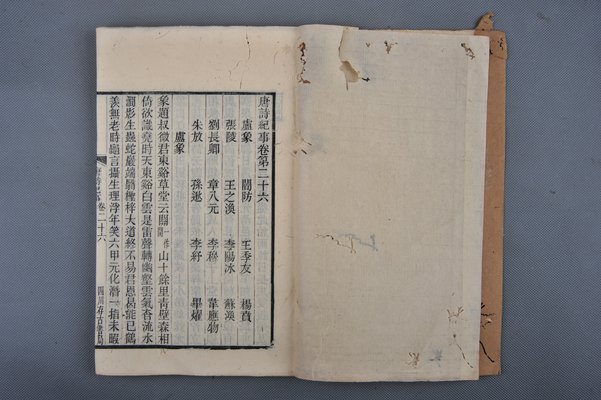 唐詩紀事卷第二十六
盧象 閻防 王季友 楊賁
張陵 王之渙 李陽冰 蘇渙
劉長卿 章八元 李穆 韋應物
朱放 孫逖 李紓 畢燿
盧象
象題叔微君東谿草堂云開 一作 山十餘里青壁森相
倚欲識堯時天東谿白雲是雷聲轉幽壑雲氣杳流水
澗影生蟲蛇巖端翳檉梓大道終不易君恩曷能已鶴
羨無老時龜言攝生理浮年笑六甲元化潛一指未暇
卷二十六
四川存古書局